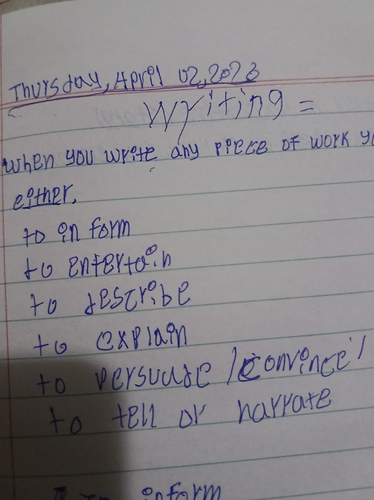 Thursday, April 02, 2023
Writing =
When you write any piece of work yo
either.
to inform
to entertain
to describe
to explain
to persuade / convince /
to tell or narrate
inform